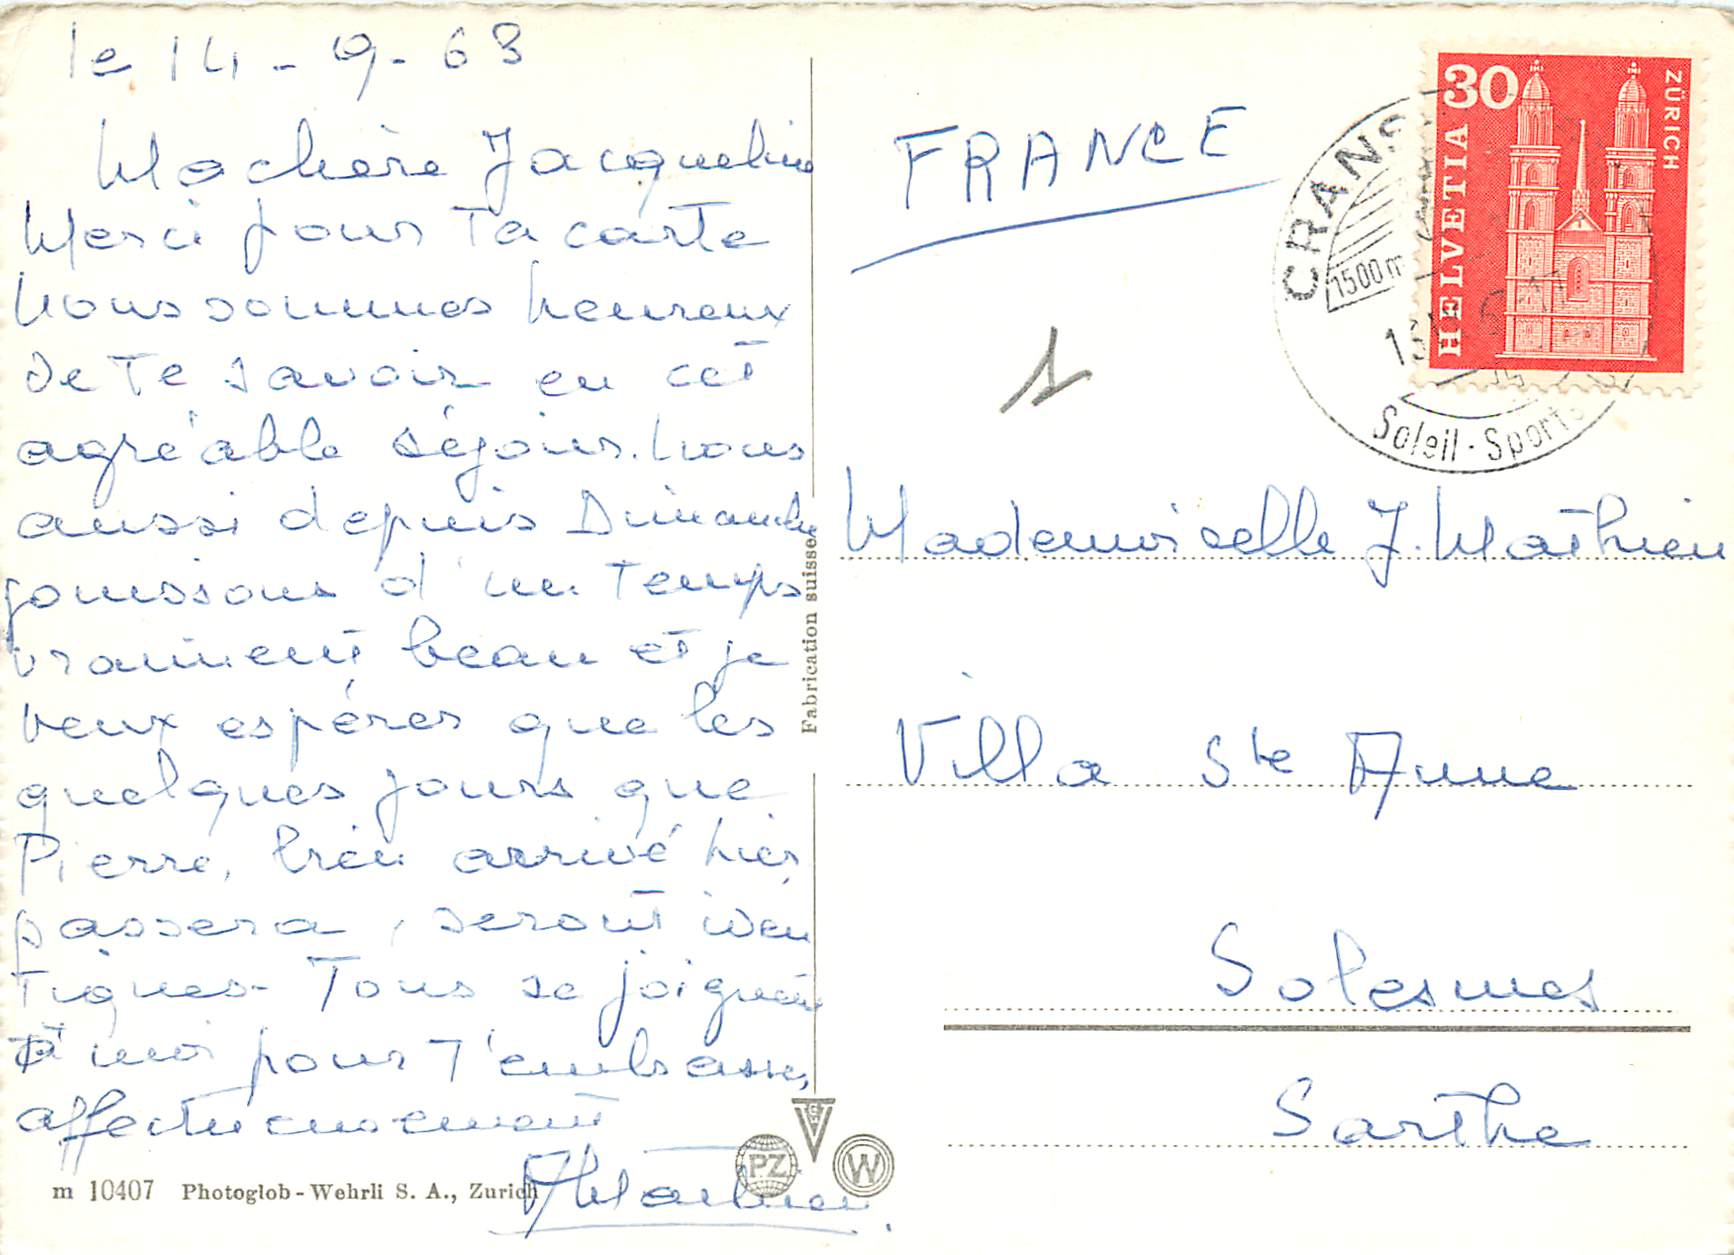 le 14-9-63
Ma chère Jacqueline
Merci pour Ta carte
Nous sommes heureux
de Te savoir en cet
agréable séjour. Nous
aussi depuis Dimanche
jouissons d'un Temps
vraiment beau et je
veux espérer que les
quelques jours que
Pierre, bien arrivé hier,
passera, seront iden
Tiques- Tous se joignent
à moi pour T'embrasser
affectueusement
AMathieu.
m 10407 Photoglob-Wehrli S. A., Zurich
Fabrication suisse
PZ
W
FRANCE
1
30
HELVETIA
ZÜRICH
CRANS
1500 m
Soleil - Sports
Mademoiselle J. Mathieu
Villa Ste Anne
Solesmes
Sarthe